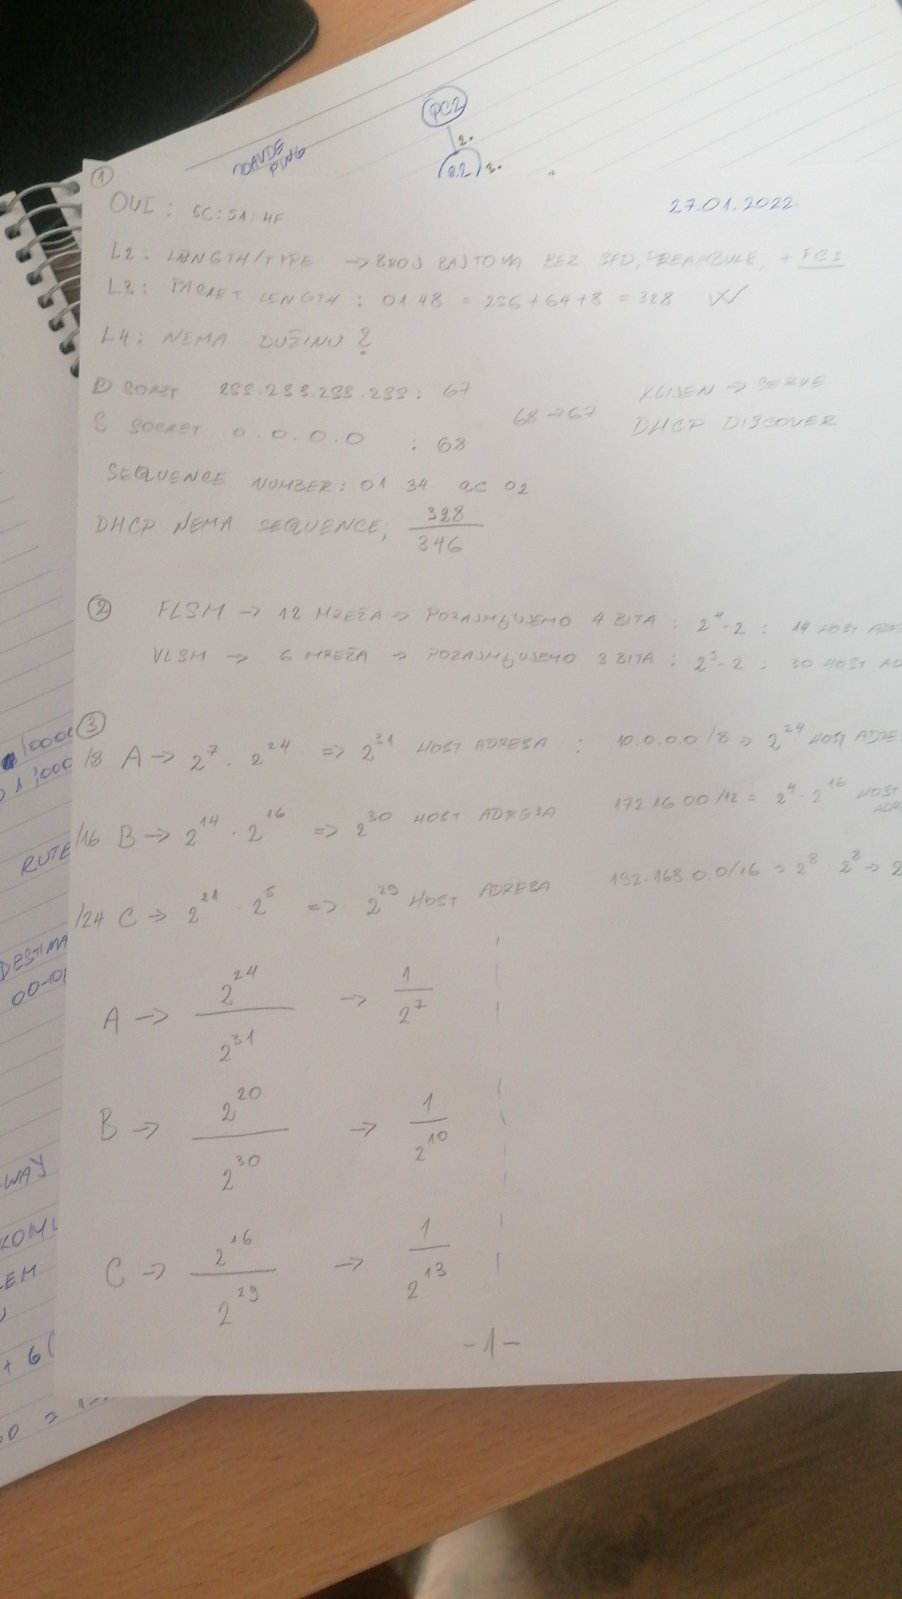 PC2
2.
0.2
3.
NAVDE
PING
1
27.01.2022
OUI: 5C:51:4F
L2: LENGTH/TYPE → BROJ BAJTOVA BEZ SFD, PREAMBULE, + FCS
L3: PACKET LENGTH: 0148 = 256+64+8 = 328
L4: NEMA DUŽINU?
D SOKET 255.255.255.255: 67
S SOCKET 0.0.0.0 : 68
68→67
KLIJEN → SERVE
DHCP DISCOVER
SEQUENCE NUMBER: 01 34 02
DHCP NEMA SEQUENCE; 328
346
2 FLSM → 12 MREŽA → POZAJMLJUJEMO 4 BITA : 2⁴-2 : 14 HOST ADRE
VLSM → 6 MREŽA → POZAJMLJUJEMO 3 BITA : 2⁵-2 : 30 HOST AD
3
/8 A → 2⁷ · 2²⁴ => 2³¹ HOST ADRESA : 10.0.0.0/8 => 2²⁴ HOST ADRE
/16 B → 2¹⁴ · 2¹⁶ => 2³⁰ HOST ADRESA 172.16.0.0/12 = 2⁴ · 2¹⁶ HOST
/24 C → 2²¹ · 2⁸ => 2²⁹ HOST ADRESA 192.168.0.0/16 => 2⁸ 2⁸ => 2
A → 2²⁴ / 2³¹ → 1 / 2⁷
B → 2²⁰ / 2³⁰ → 1 / 2¹⁰
C → 2¹⁶ / 2²⁹ → 1 / 2¹³
-1-
/1000
1 /1000
RUTE
DESTINA
-WAY
KOM